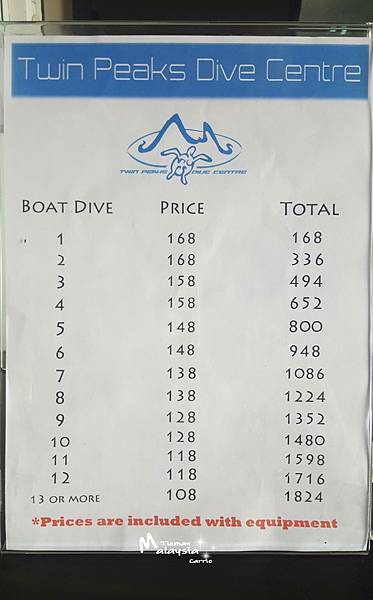 Twin Peaks Dive Centre
TWIN PEAKS DIVE CENTRE
BOAT DIVE PRICE TOTAL
1 168 168
2 168 336
3 158 494
4 158 652
5 148 800
6 148 948
7 138 1086
8 138 1224
9 128 1352
10 128 1480
11 118 1598
12 118 1716
13 OR MORE 108 1824
*Prices are included with equipment
Tioman
Malaysia
Carrie